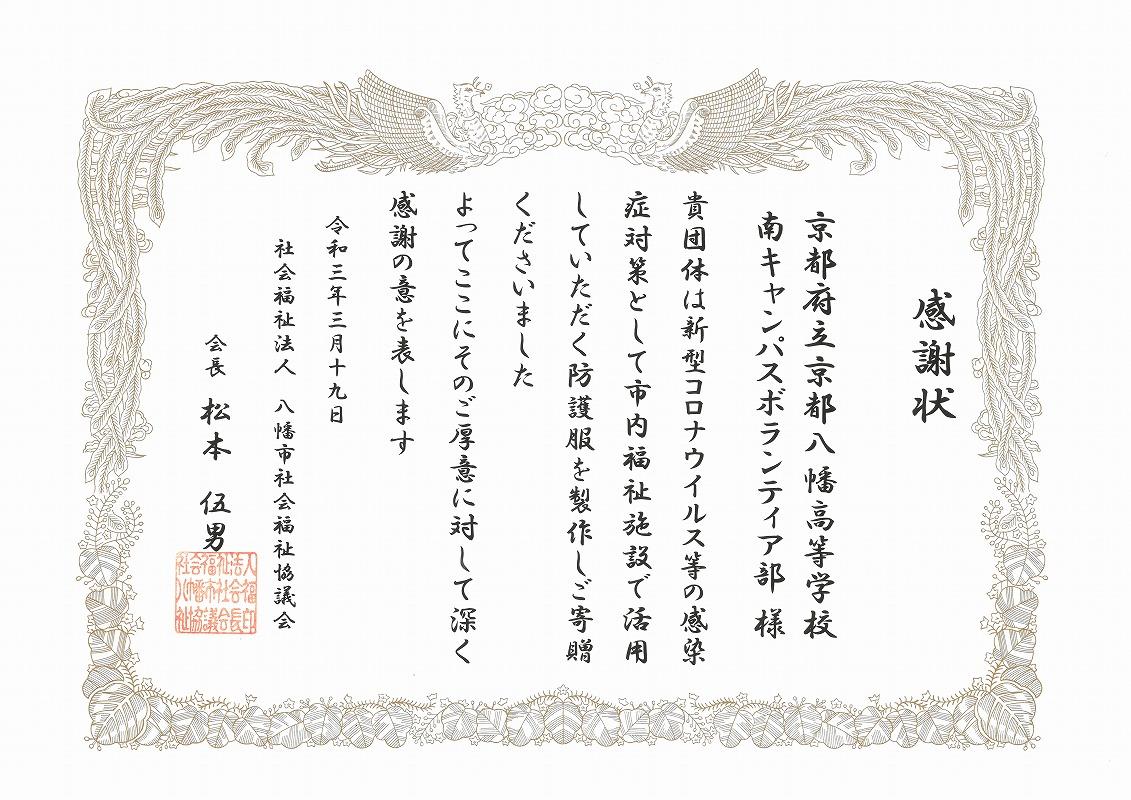 感謝状
京都府立京都八幡高等学校
南キャンパスボランティア部 様
貴団体は新型コロナウイルス等の感染
症対策として市内福祉施設で活用
していただく防護服を製作しご寄贈
くださいました
よってここにそのご厚意に対して深く
感謝の意を表します
令和三年三月十九日
社会福祉法人 八幡市社会福祉協議会
会長 松本 伍男
社会福祉法人
八幡市社会福
祉協議会長印